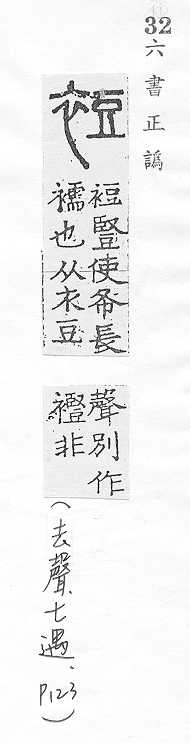 32 六書正譌
裋
裋豎使布長
襦也从衣豆
聲別作
非
(去聲、七遇、P123)